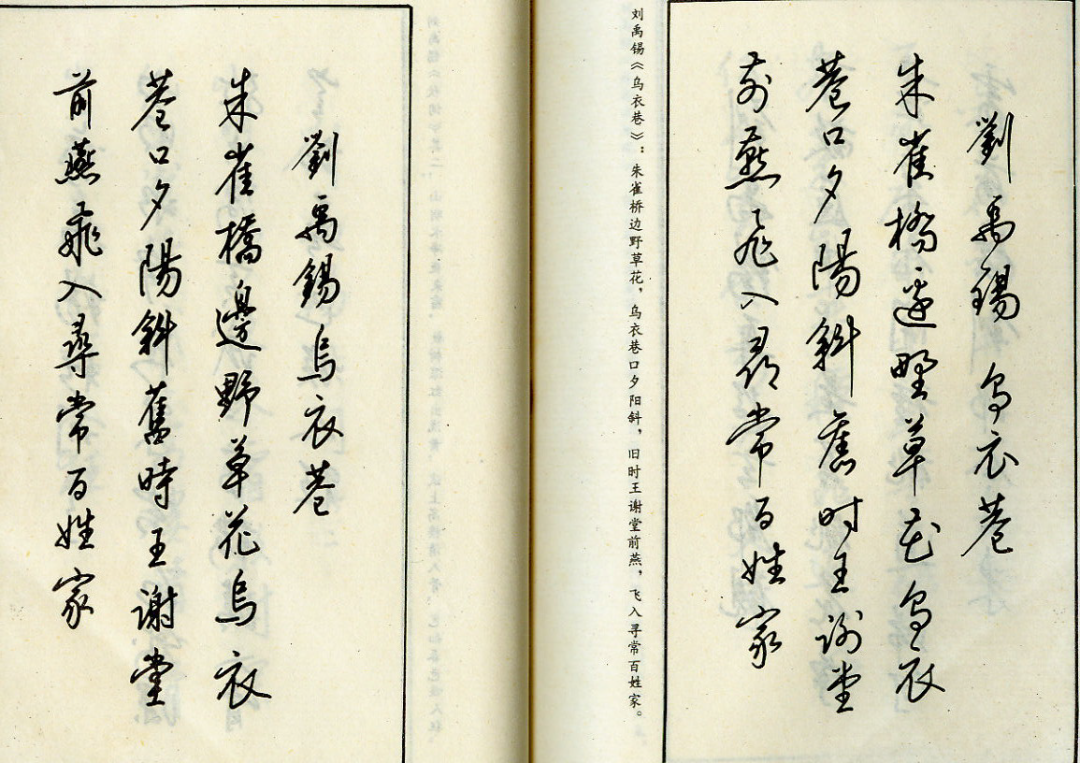 劉禹錫 烏衣巷
朱雀橋邊野草花烏衣
巷口夕陽斜舊時王謝堂
前燕飛入尋常百姓家
刘禹锡《乌衣巷》：朱雀桥边野草花，乌衣巷口夕阳斜，旧时王谢堂前燕，飞入寻常百姓家。
劉禹錫烏衣巷
朱雀橋邊野草花烏衣
巷口夕陽斜舊時王謝堂
前燕飛入尋常百姓家